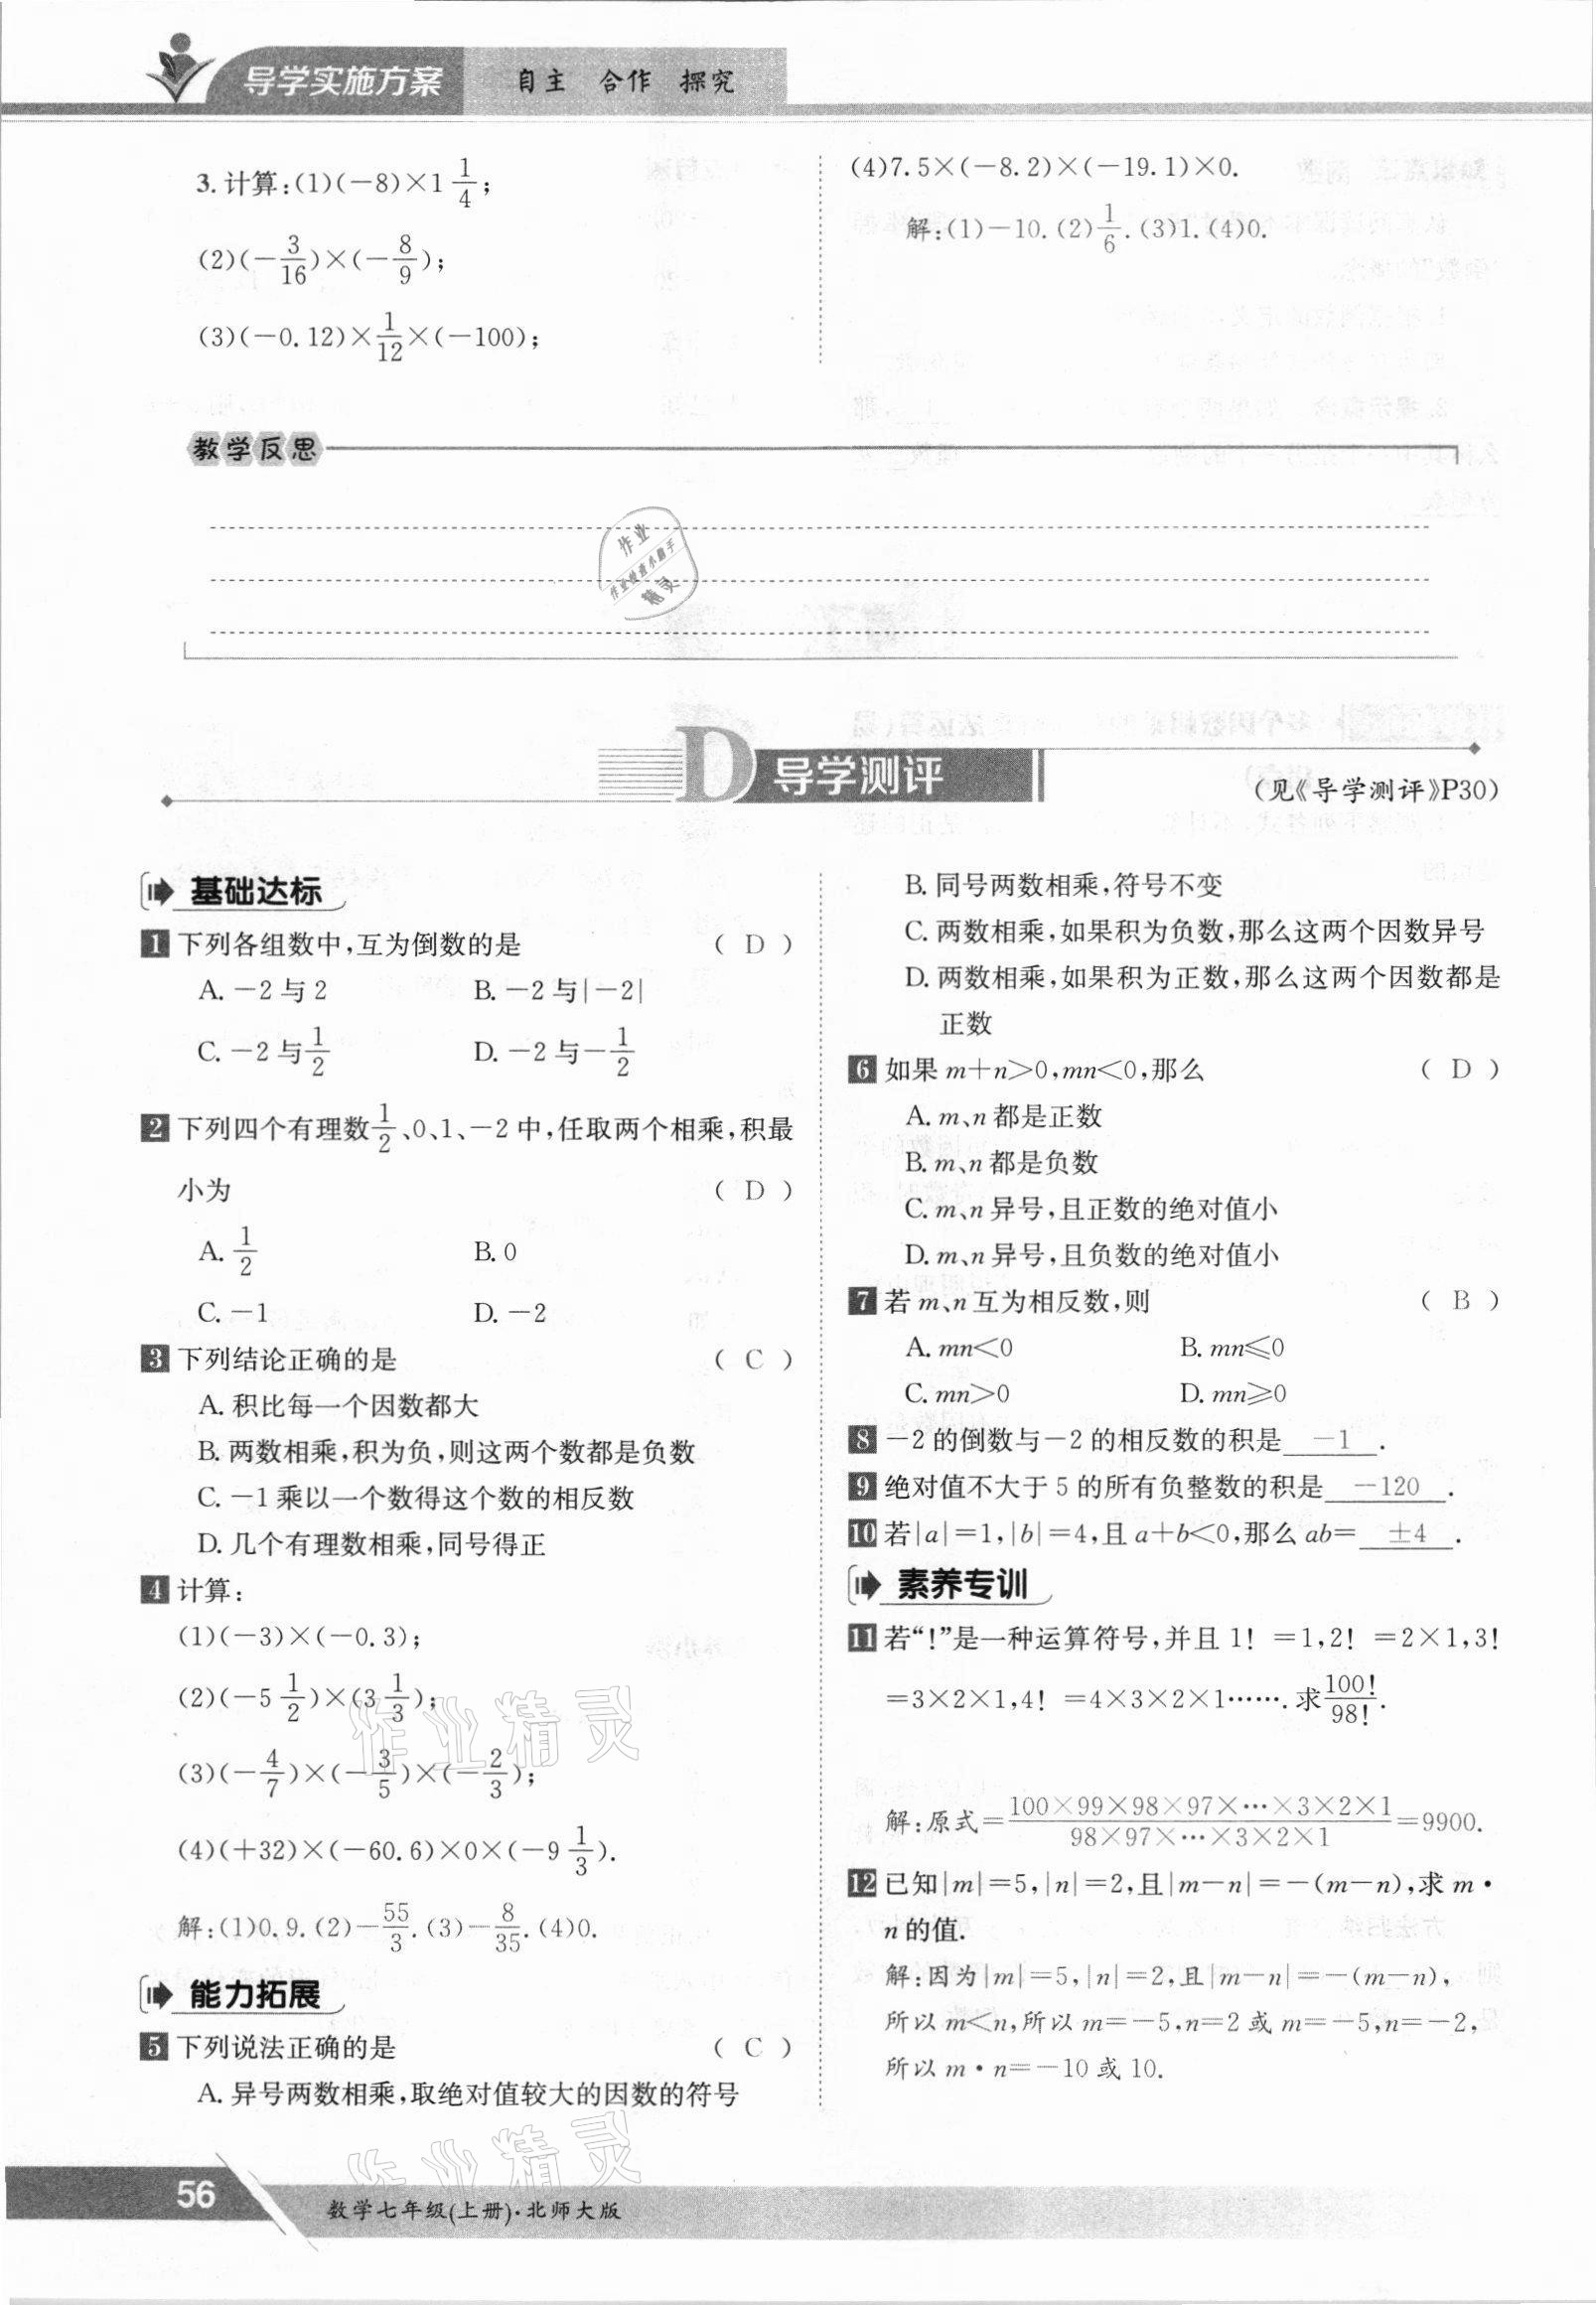 导学实施方案 自主 合作 探究
3. 计算:(1)(-8)×1 1/4;
(2)(-3/16)×(-8/9);
(3)(-0.12)×1/12×(-100);
(4)7.5×(-8.2)×(-19.1)×0.
解:(1)-10.(2)1/6.(3)1.(4)0.
教学反思
作业
作业检查小助手
精灵
D 导学测评
(见《导学测评》P30)
基础达标
1 下列各组数中,互为倒数的是 ( D )
A. -2与2 B. -2与|-2|
C. -2与1/2 D. -2与-1/2
2 下列四个有理数1/2、0、1、-2中,任取两个相乘,积最
小为 ( D )
A. 1/2 B. 0
C. -1 D. -2
3 下列结论正确的是 ( C )
A. 积比每一个因数都大
B. 两数相乘,积为负,则这两个数都是负数
C. -1乘以一个数得这个数的相反数
D. 几个有理数相乘,同号得正
4 计算:
(1)(-3)×(-0.3);
(2)(-5 1/2)×(3 1/3);
(3)(-4/7)×(-3/5)×(-2/3);
(4)(+32)×(-60.6)×0×(-9 1/3).
解:(1)0.9.(2)-55/3.(3)-8/35.(4)0.
能力拓展
5 下列说法正确的是 ( C )
A. 异号两数相乘,取绝对值较大的因数的符号
B. 同号两数相乘,符号不变
C. 两数相乘,如果积为负数,那么这两个因数异号
D. 两数相乘,如果积为正数,那么这两个因数都是
正数
6 如果m+n>0,mn<0,那么 ( D )
A. m、n都是正数
B. m、n都是负数
C. m、n异号,且正数的绝对值小
D. m、n异号,且负数的绝对值小
7 若m、n互为相反数,则 ( B )
A. mn<0 B. mn≤0
C. mn>0 D. mn≥0
8 -2的倒数与-2的相反数的积是 -1 .
9 绝对值不大于5的所有负整数的积是 -120 .
10 若|a|=1,|b|=4,且a+b<0,那么ab= ±4 .
素养专训
11 若“!”是一种运算符号,并且1! =1,2! =2×1,3!
=3×2×1,4! =4×3×2×1…….求100!/98!.
解:原式=100×99×98×97×…×3×2×1/98×97×…×3×2×1=9900.
12 已知|m|=5,|n|=2,且|m-n|=-(m-n),求m·
n的值.
解:因为|m|=5,|n|=2,且|m-n|=-(m-n),
所以m<n,所以m=-5,n=2或m=-5,n=-2,
所以m·n=-10或10.
作业精灵
作业精灵
56
数学七年级(上册)·北师大版